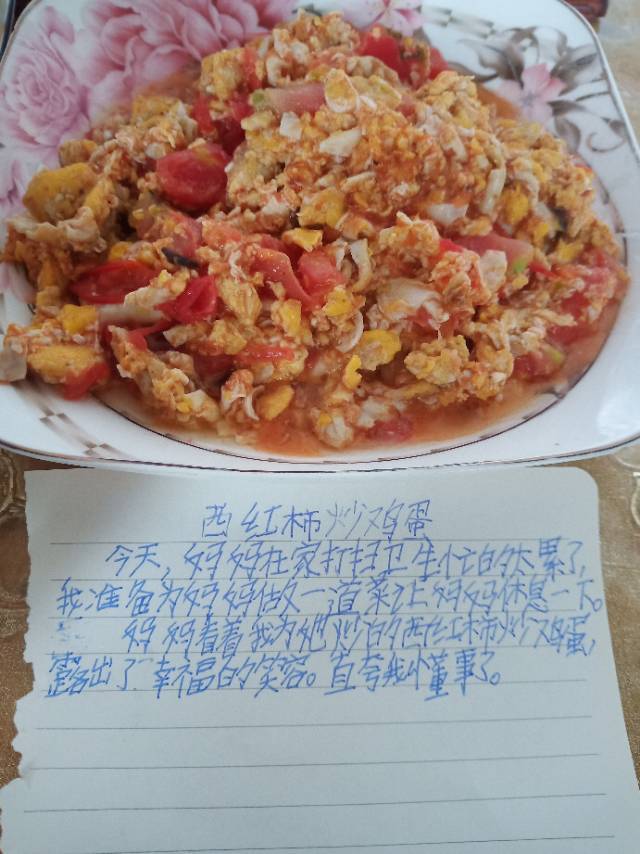 西红柿炒鸡蛋
今天,妈妈在家打扫卫生忙的太累了,
我准备为妈妈做一道菜让妈妈休息一下。
妈妈看着我为她炒的西红柿炒鸡蛋,
露出了幸福的笑容。直夸我懂事了。